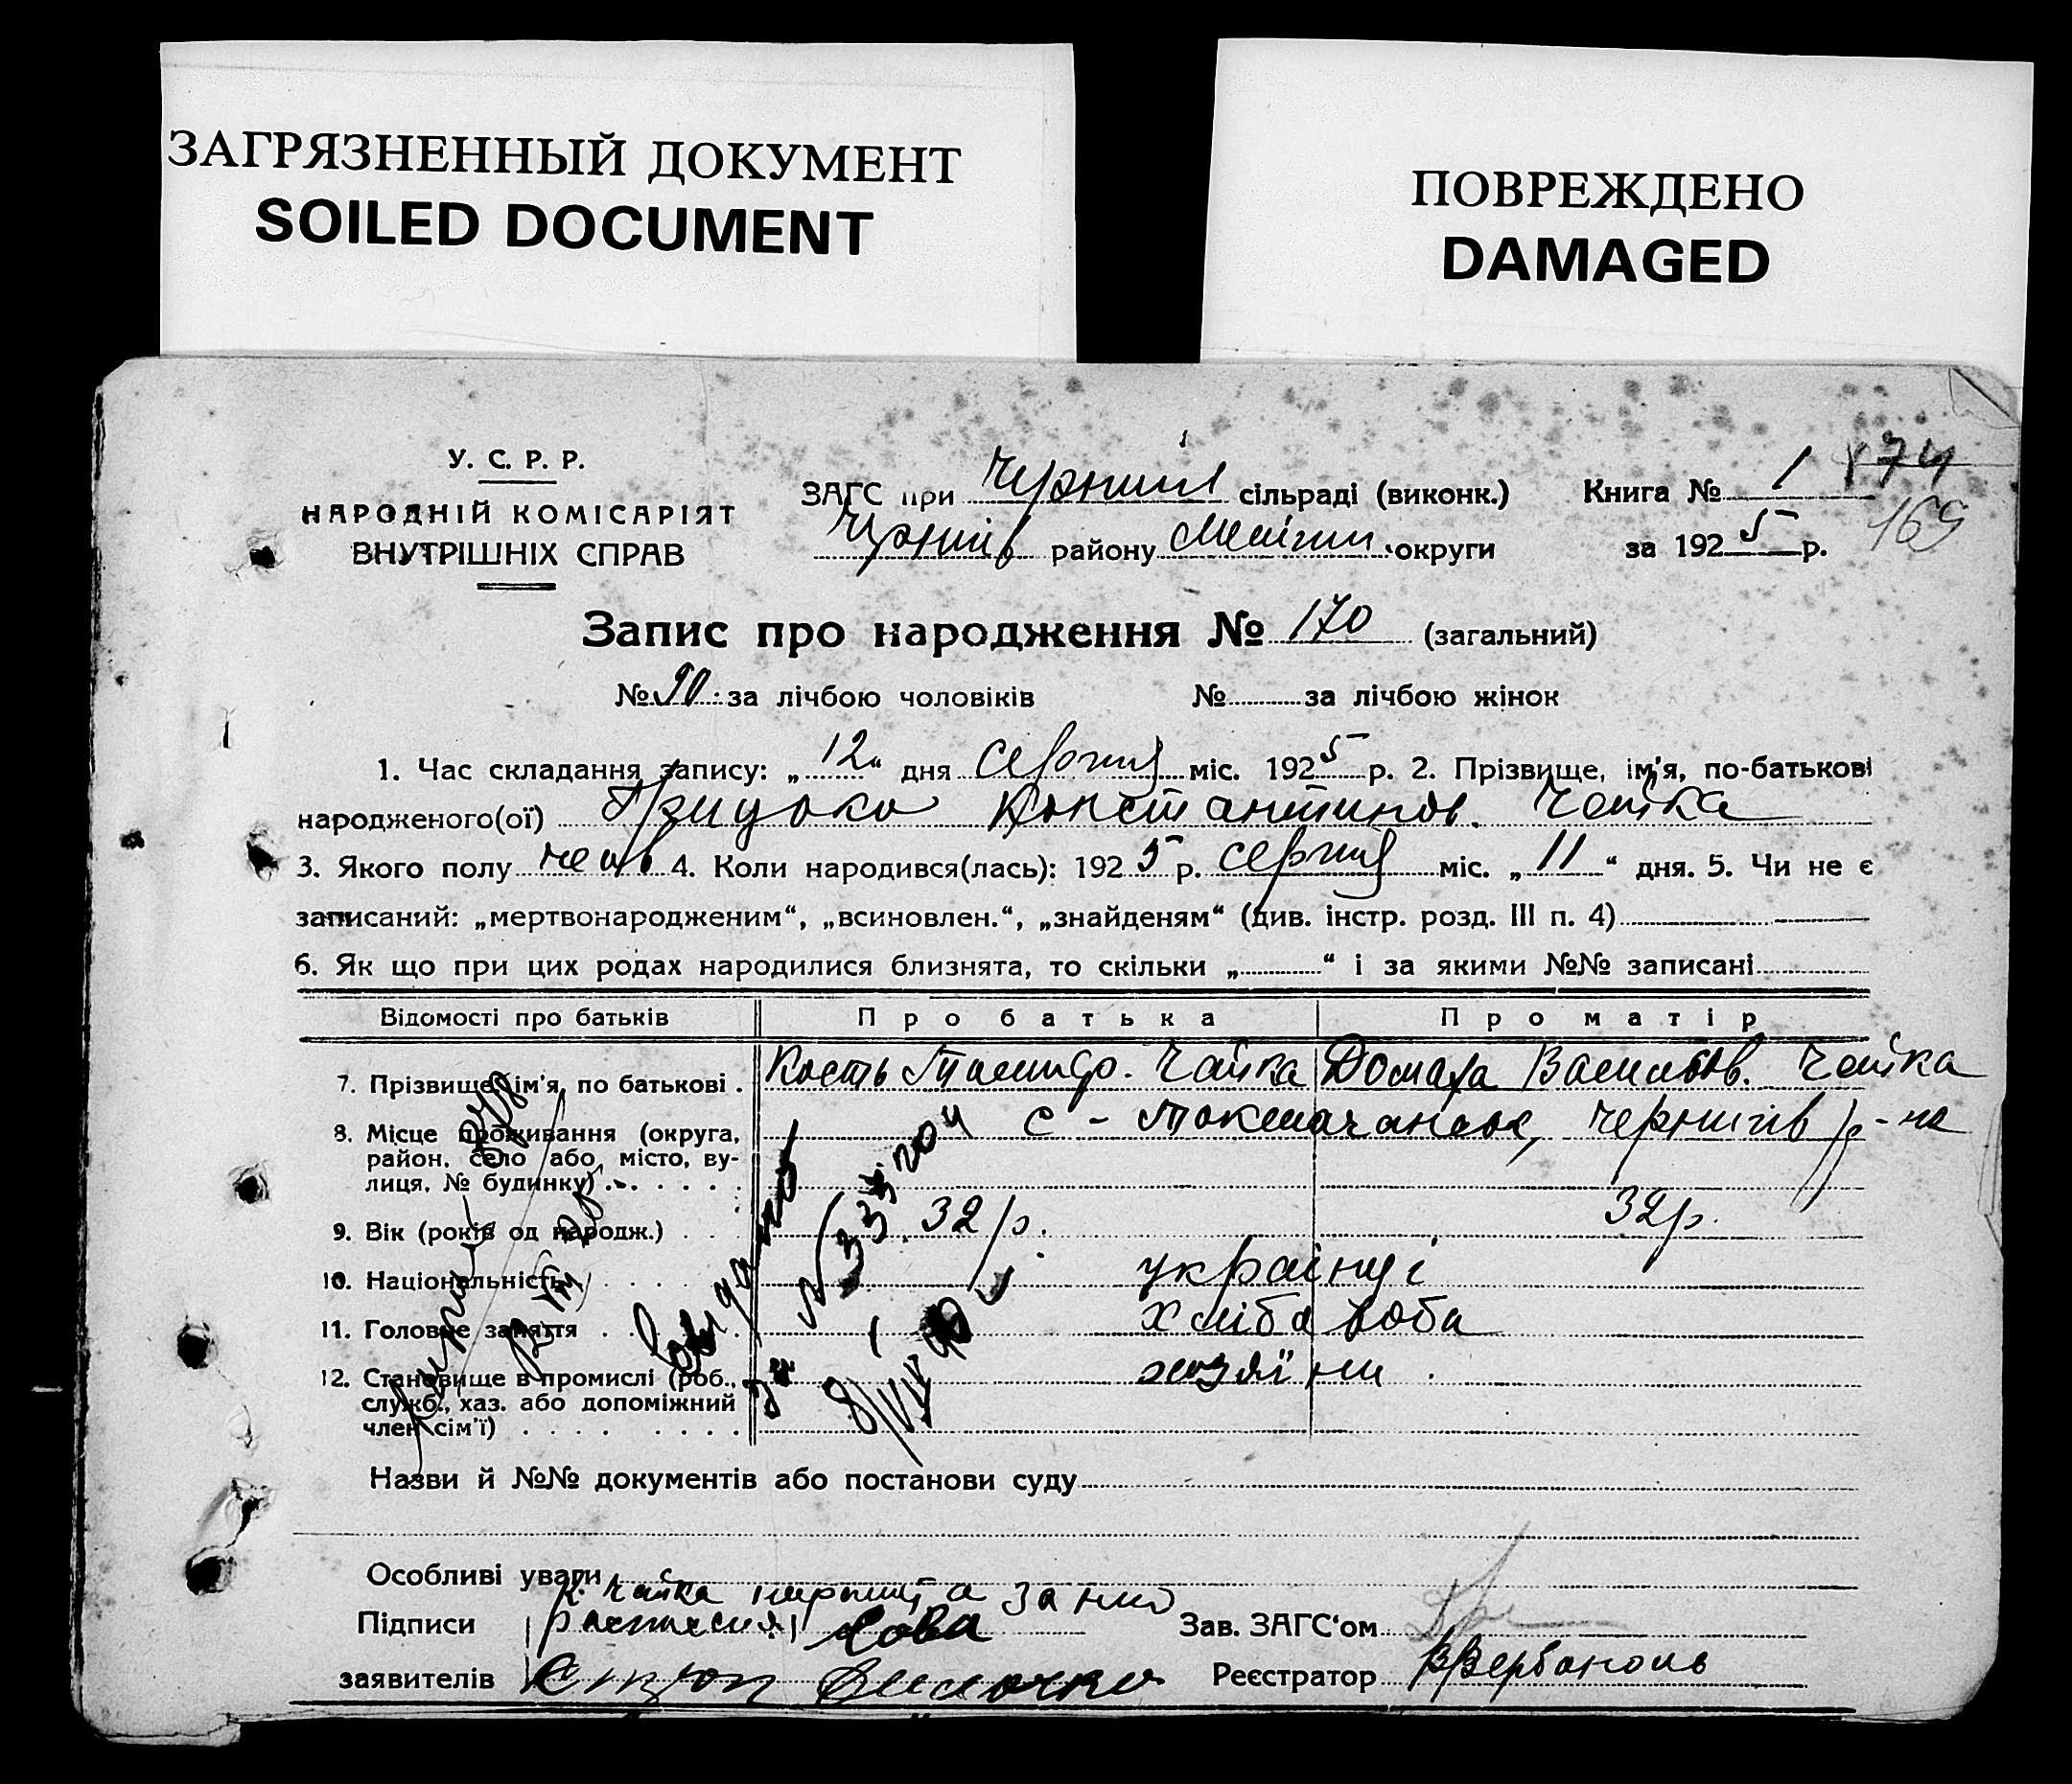 ЗАГРЯЗНЕННЫЙ ДОКУМЕНТ
SOILED DOCUMENT
ПОВРЕЖДЕНО
DAMAGED
У. С. Р. Р.
НАРОДНІЙ КОМІСАРІЯТ
ВНУТРІШНІХ СПРАВ
ЗАГС при сільраді (виконк.)
Чернигів району округи
Книга № 1 174
за 1925 р. 169
Запис про народження № 170 (загальний)
№ 90 за лічбою чоловіків № за лічбою жінок
1. Час складання запису: „12“ дня серпня міс. 1925 р. 2. Прізвище, ім'я, по-батькові
народженого(ої) Константинов. Чайка
3. Якого полу чолов 4. Коли народився(лась): 1925 р. серпня міс. „11“ дня. 5. Чи не є
записаний: „мертвонародженим“, „всиновлен.“, „знайденям“ (див. інстр. розд. III п. 4)
6. Як що при цих родах народилися близнята, то скільки „ “ і за якими №№ записані
Відомості про батьків Про батька Про матір
7. Прізвище, ім'я, по батькові . Кость Тимоф. Чайка Домаха Васильов. Чайка
8. Місце проживання (округа, с - Токмачанськ, Чернигів р-на
район, село або місто, ву-
лиця, № будинку) . . . . . .
9. Вік (років од народж.) . . . 32 р. 32 р.
10. Національність . . . . . українці
11. Головне заняття . . . . хлібороба
12. Становище в промислі (роб., хозяїни
служб., хаз. або допоміжний
член сім'ї) . . . . . . . .
Назви й №№ документів або постанови суду
Особливі уваги
К. Чайка за його
Підписи Сова Зав. ЗАГС'ом
заявителів Реєстратор